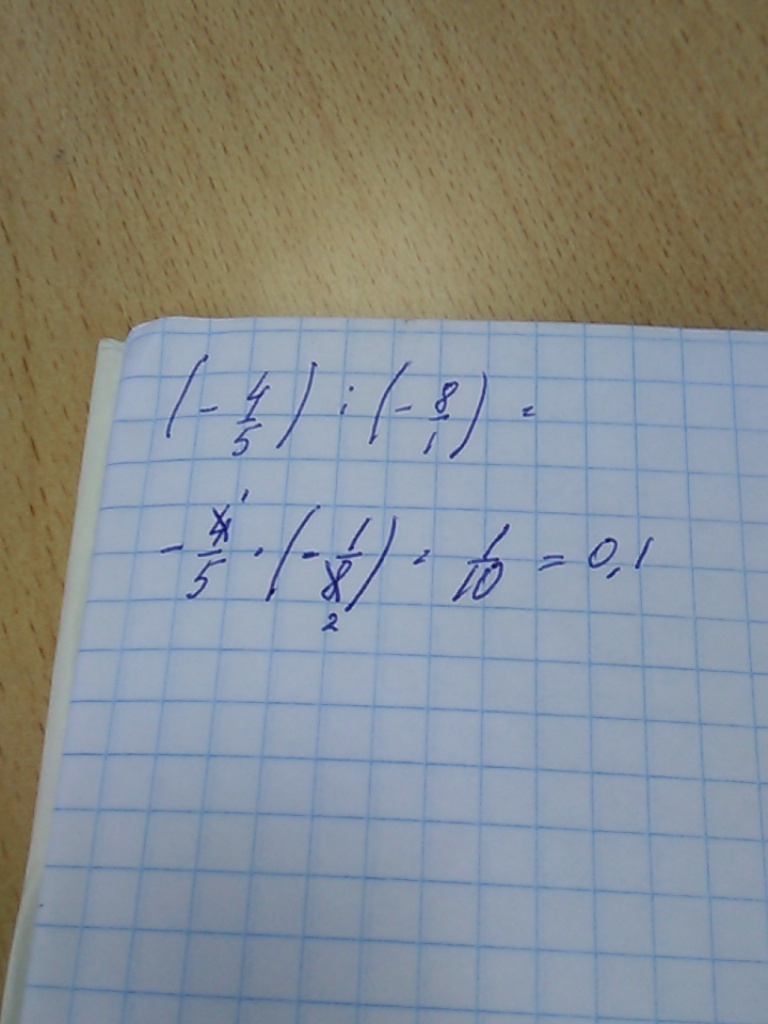 (- 4/5) : (- 8/1) =
- 4̸¹/5 · (- 1/8̸₂) = 1/10 = 0,1